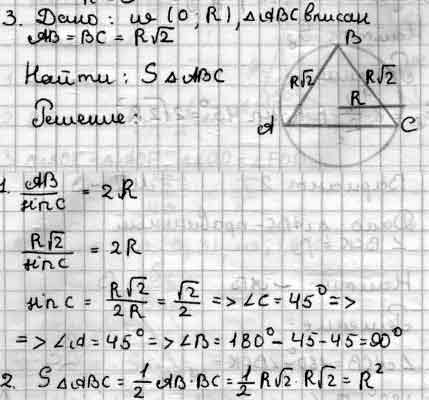 3. Дано: ω (O; R), △ABC вписан
AB = BC = R√2
Найти: S △ ABC
Решение:
B
R√2
R√2
R
A
C
1. AB/sin C = 2R
R√2/sin C = 2R
sin C = R√2/2R = √2/2 => ∠C = 45° =>
=> ∠A = 45° => ∠B = 180° - 45 - 45 = 90°
2. S △ ABC = 1/2 AB · BC = 1/2 R√2 · R√2 = R²